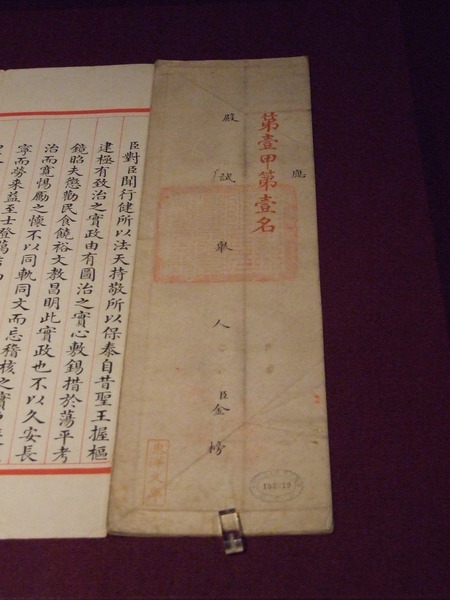 應
第壹甲第壹名
殿試舉人臣金榜
東洋文庫
臣對臣聞行健所以法天持敬所以保泰自昔聖王握樞
建極有致治之實政由有圖治之實心敷錫措於蕩平考
鏡昭夫懲勸民食饒裕文教昌明此實政也不以久安長
治而寬惕勵之懷不以同軌同文而忘稽核之實
寧而勞來益至士登萬